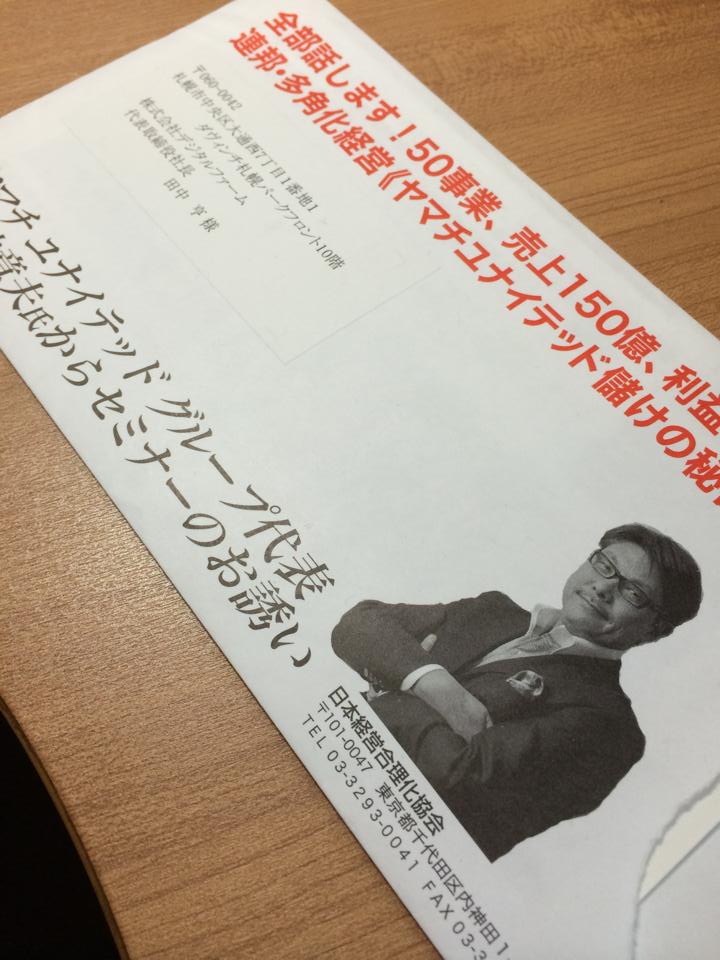 全部話します！50事業、売上150億、利益
連邦・多角化経営《ヤマチユナイテッド儲けの秘
〒060-0042
札幌市中央区大通西7丁目1番地1
ダヴィンチ札幌パークフロント10階
株式会社デジタルファーム
代表取締役社長 田中 亨 様
マチユナイテッドグループ代表
章夫氏からセミナーのお誘い
日本経営合理化協会
〒101-0047 東京都千代田区内神田1
TEL 03-3293-0041 FAX 03-3